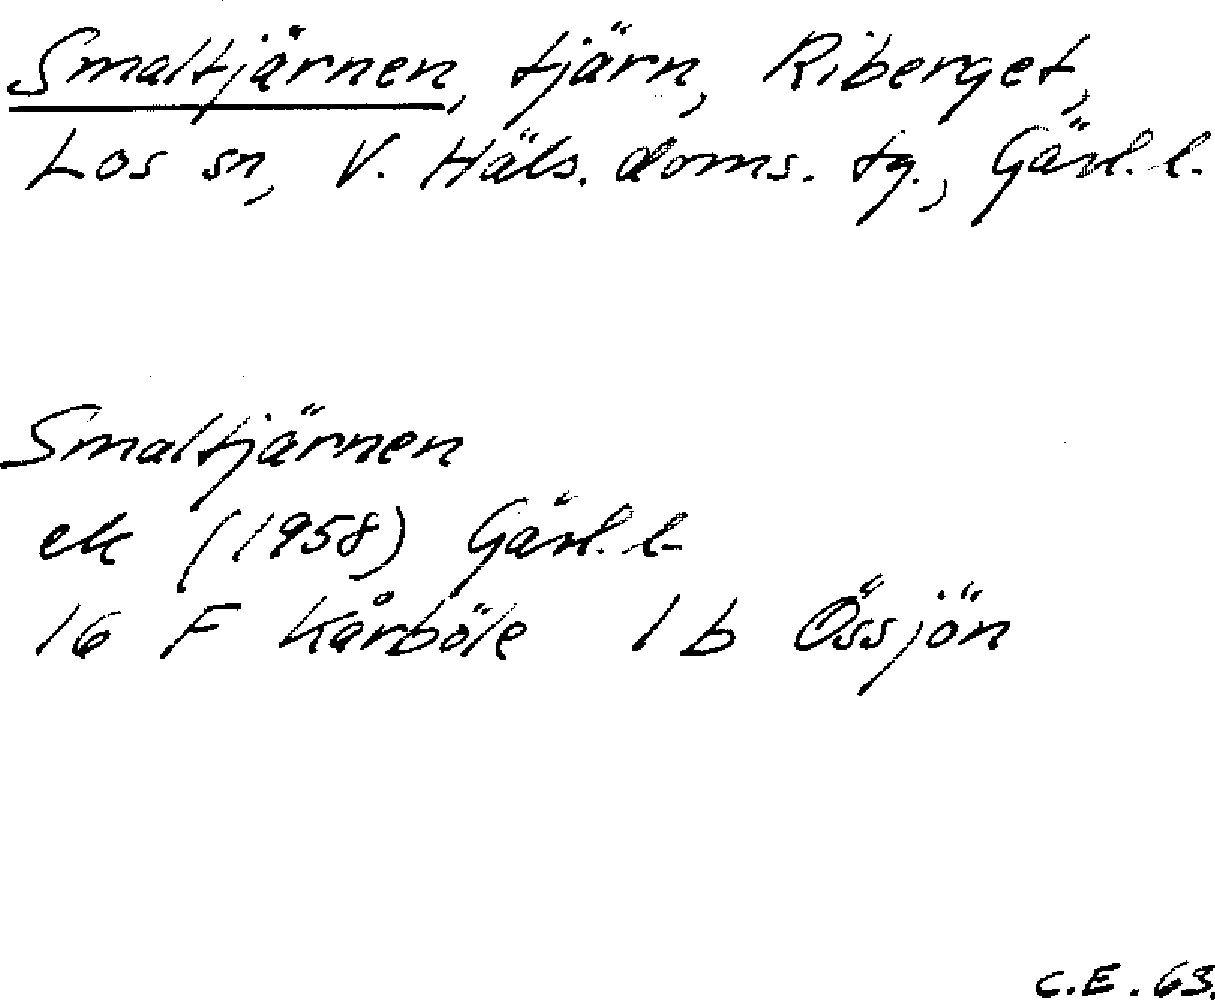 Smaltjärnen, tjärn, Riberget,
Los sn, V. Häls. doms. tg., Gävl. l.
Smaltjärnen
ek (1958) Gävl. l.
16 F Kårböle 1 b Össjön
C.E. 63.